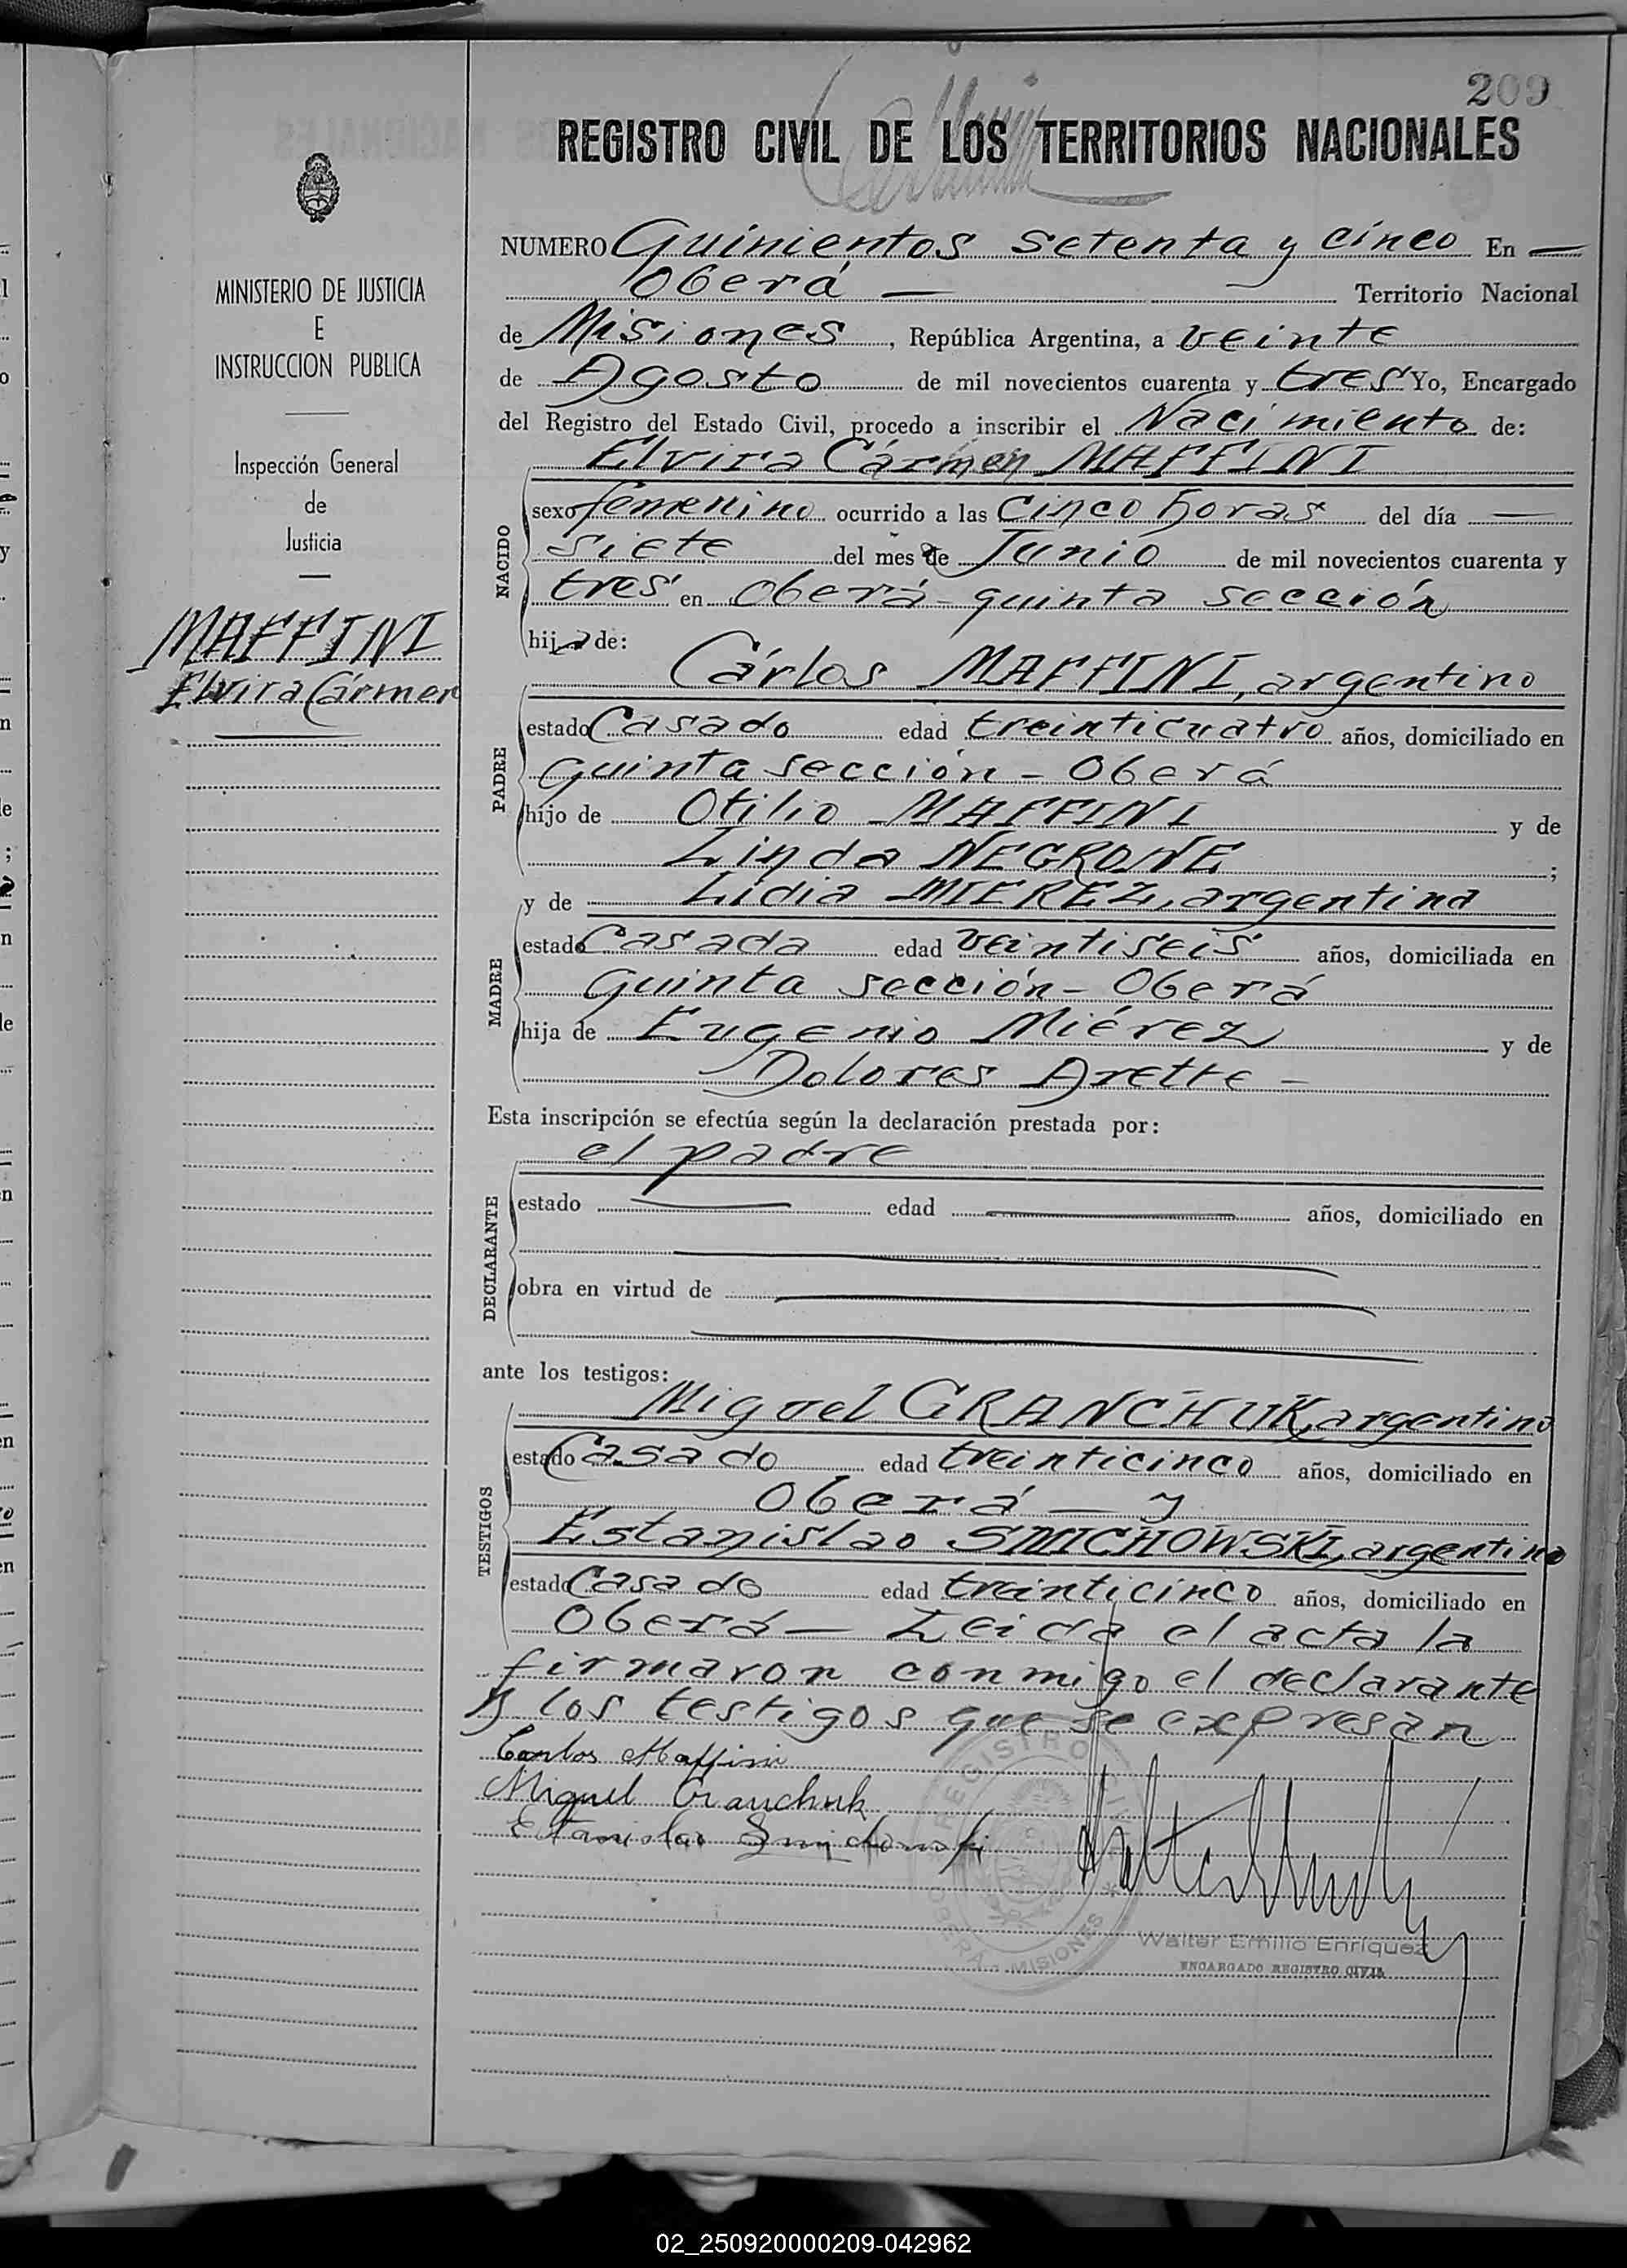 209
REGISTRO CIVIL DE LOS TERRITORIOS NACIONALES
MINISTERIO DE JUSTICIA
E
INSTRUCCION PUBLICA
Inspección General
de
Justicia
MAFFINI
Elvira Cármen
NUMERO Quinientos setenta y cinco En —
Oberá — Territorio Nacional
de Misiones, República Argentina, a veinte
de Agosto de mil novecientos cuarenta y tres Yo, Encargado
del Registro del Estado Civil, procedo a inscribir el Nacimiento de:
Elvira Cármen MAFFINI
NACIDO
sexo femenino ocurrido a las Cinco horas del día —
siete del mes de Junio de mil novecientos cuarenta y
tres en Oberá - quinta sección
hija de:
Cárlos MAFFINI, argentino
PADRE
estado Casado edad treinticuatro años, domiciliado en
quinta sección - Oberá
hijo de Otilio MAFFINI y de
Linda NEGRONE ;
y de Lidia MIEREZ, argentina
MADRE
estado Casada edad veintiseis años, domiciliada en
quinta sección - Oberá
hija de Eugenio Miérez y de
Dolores Arette -
Esta inscripción se efectúa según la declaración prestada por:
el padre
DECLARANTE
estado — edad — años, domiciliado en
obra en virtud de
ante los testigos:
Miguel GRANCHUK, argentino
TESTIGOS
estado Casado edad treinticinco años, domiciliado en
Oberá — y
Estanislao SMICHOWSKI, argentino
estado Casado edad treinticinco años, domiciliado en
Oberá — Leida el acta la
firmaron conmigo el declarante
y los testigos que se expresan
Carlos Maffini
Miguel Granchuk
Estanislao Smichowski
REGISTRO CIVIL
OBERÁ - MISIONES
Walter Emilio Enriquez
ENCARGADO REGISTRO CIVIL
02_250920000209-042962